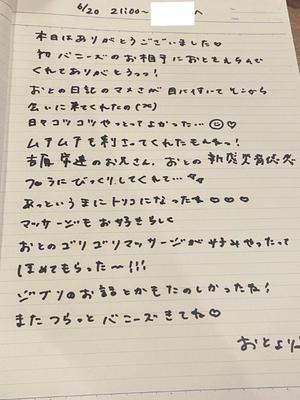 6/20 21:00〜 へ
本日はありがとうございました♡
初バニーズのお相手におとをえらんで
くれてありがとうっっ!
おとの日記のマメさが目に付いてそこから
会いに来てくれたの(⁄⁄)
日々コツコツやっとってよかった…☺♡
ムチムチも刺さってくれたもんねっ!
のお兄さん、おとの
フロうにびっくりしてくれて…
あっというまにトリコになったね♡♡♡
マッサージもお好きらしく
おとのゴリゴリマッサージが好みやったって
ほめてもらった〜!!!
ジブリのお話とかもたのしかったね!
またつらっとバニーズきてね♡
おとより